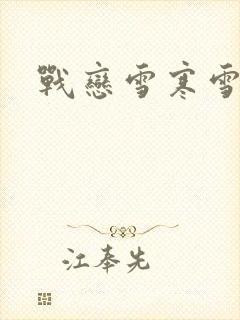 戰戀雪寒雪
江奉先